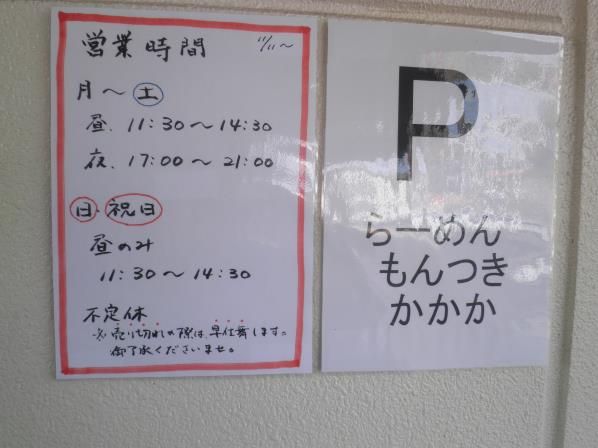 営業時間 11/11〜
月〜土
昼. 11:30〜14:30
夜. 17:00〜21:00
日・祝日
昼のみ
11:30〜14:30
不定休
※売り切れの際は、早仕舞します。
御了承くださいませ。
P
らーめん
もんつき
かかか